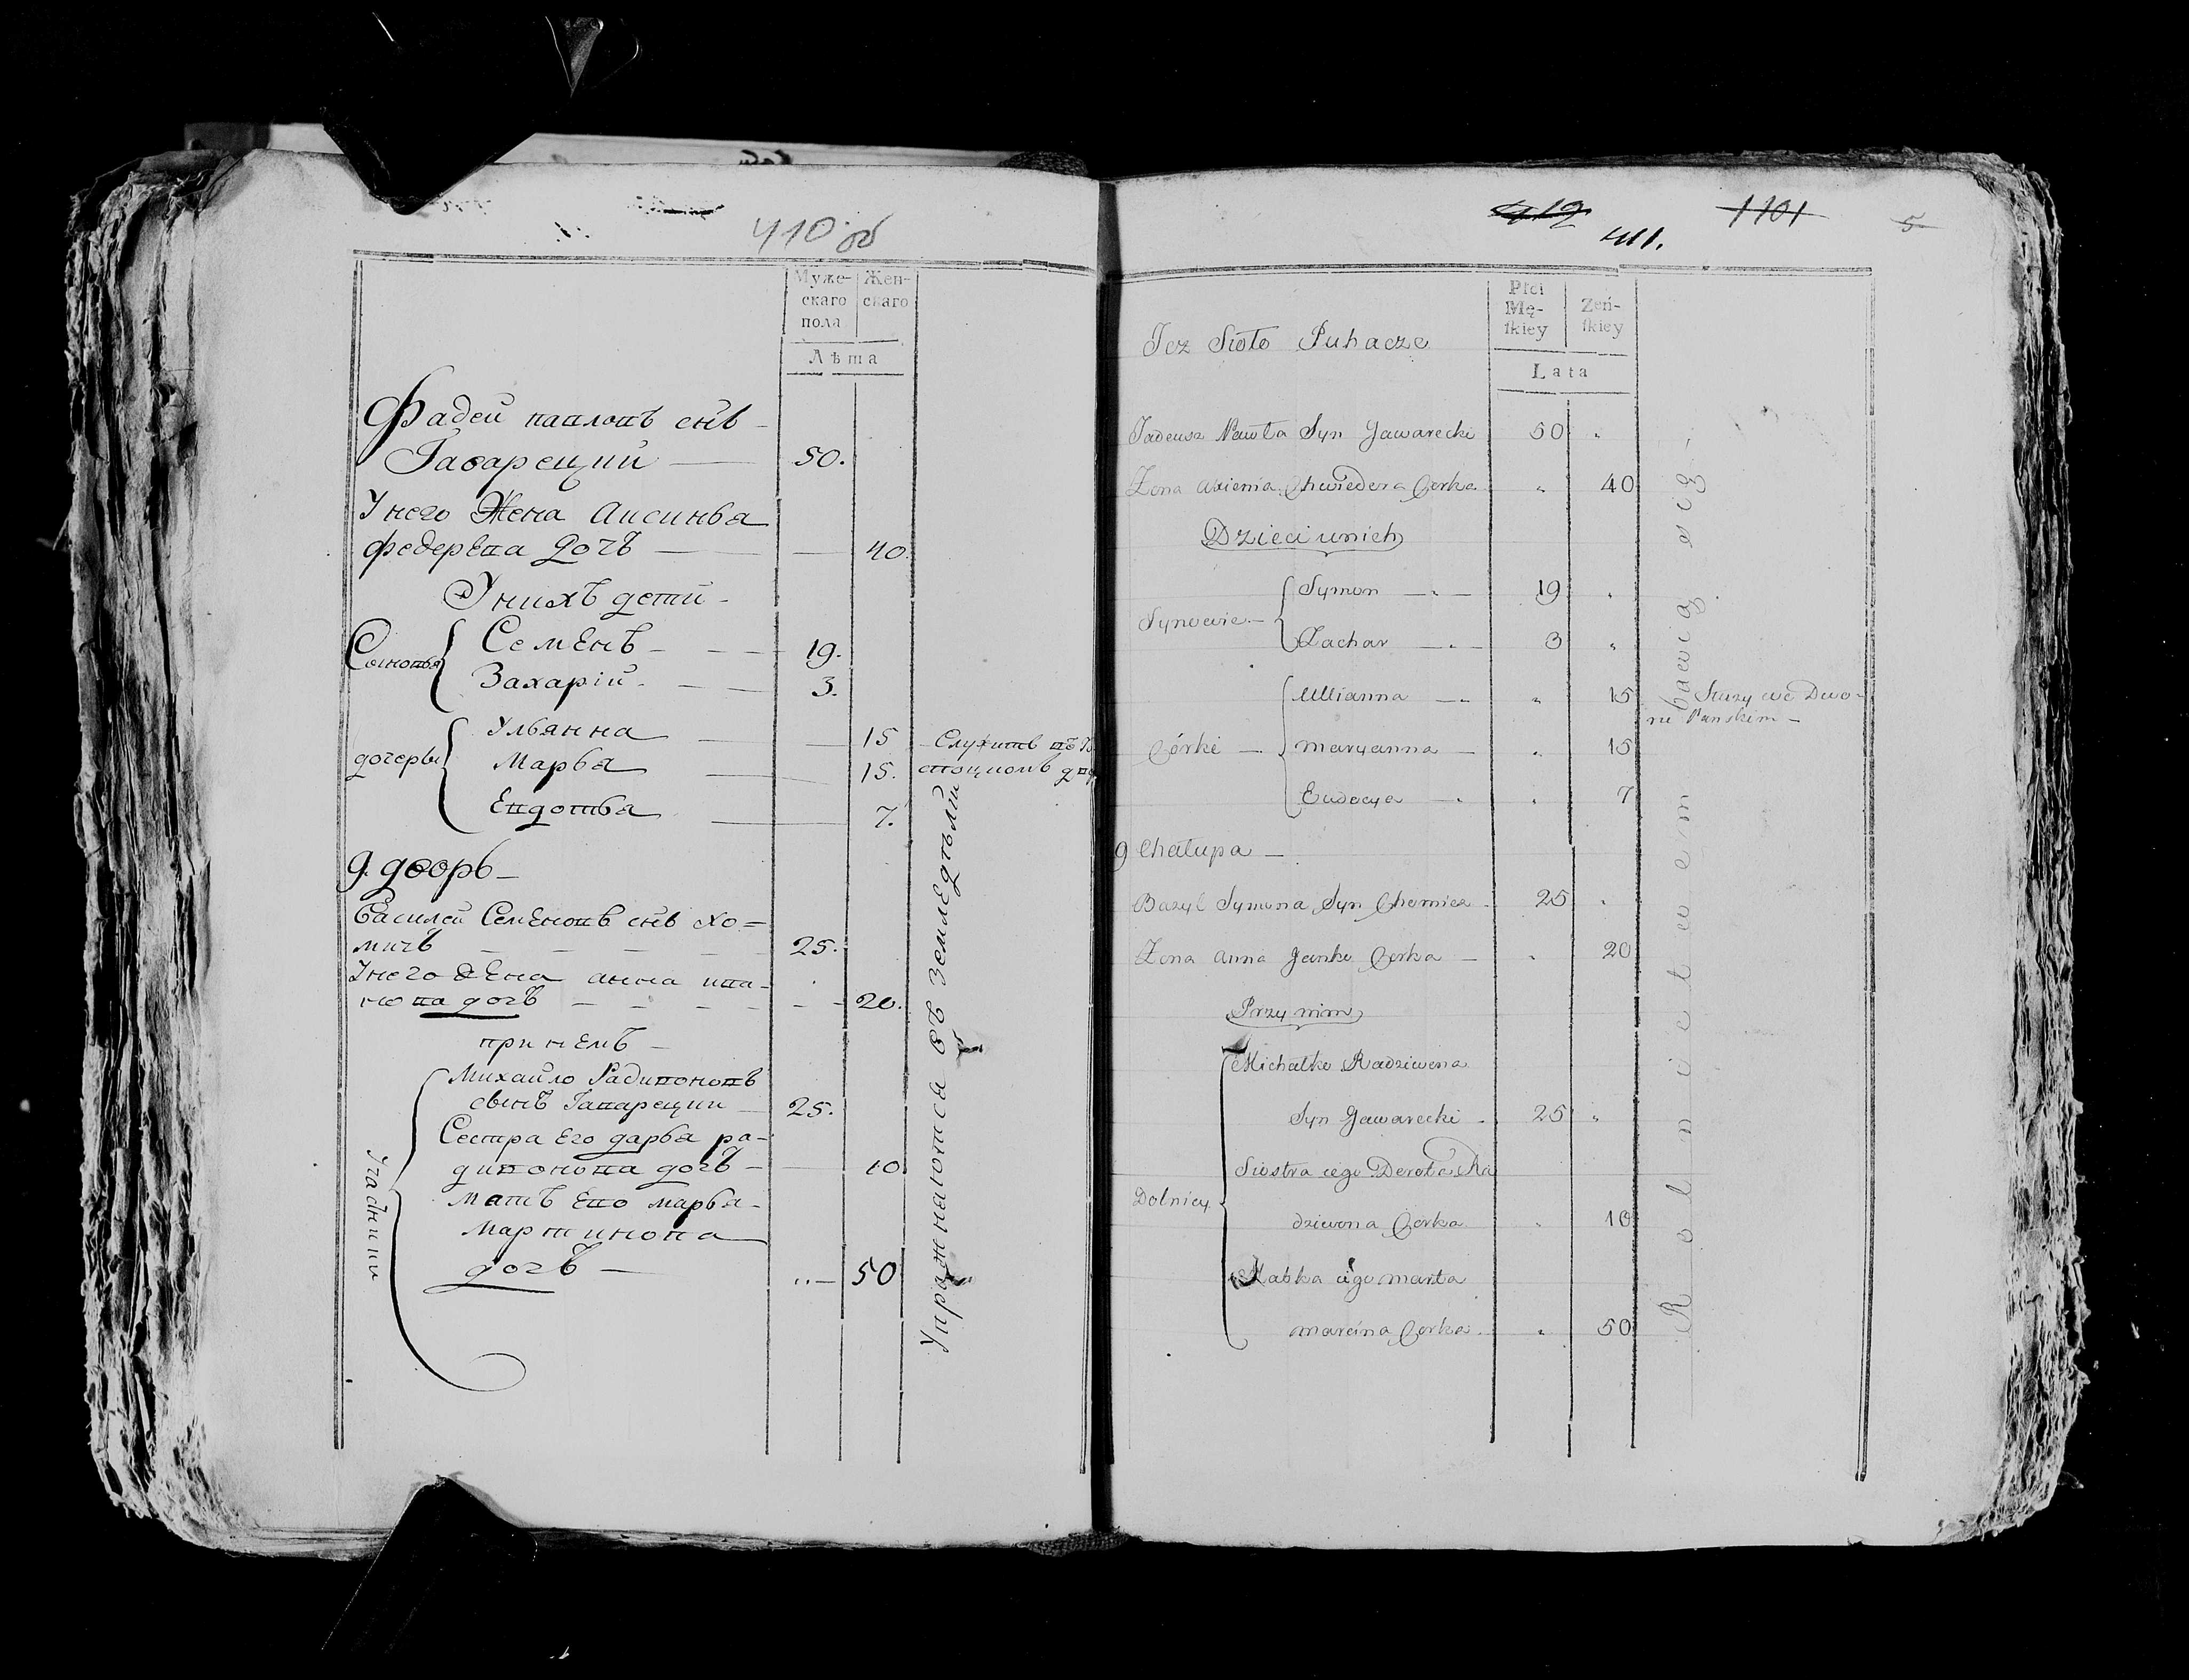 410 об
Муже-
скаго
пола
Жен-
скаго
Лѣта
Фадей павловъ снъ
Гаварецкий 50.
У него Жена Аксинья
федерѣва дочь 40.
У нихъ дети
Сыновья
Семенъ 19.
Захарій 3.
дочерьи
Ульянна 15
Марья 15.
Евдотья 7.
Служитъ въ Го-
9. дворъ
Василей Семеновъ снъ Хо=
мичъ 25.
У него жена анна ива-
нова дочь 20.
при немъ
Участники
Михайло Радивоновъ
сынъ Гаварецкии 25.
Сестра Его дарья ра-
дивонова дочь 10
мать Ево марья
мартинова
дочь 50
Упражнаются въ Землѣдѣлии
412
411.
1101
5
Płci
Mę-
ſkiey
Żeń-
ſkiey
Lata
Tez Sioło Puhacze
Tadeusz Pawła Syn Gawarecki 50 "
Zona Axienia Chwiedera Corka " 40
Dzieci u nich
Synowie
Symon 19 "
Zachar 3 "
Córki
Ullianna " 15
Maryanna " 15
Eudocya " 7
Służy we Dwo-
rze Panskim
9 Chałupa
Bazyl Symona Syn Chomicz 25 "
Zona Anna Janka Corka " 20
Przy nim
Dolnicy
Michałko Radziwona
Syn Gawarecki 25 "
Siostra iego Dorota Ra
dziwona Corka " 10
Matka iego Marta
Marcina Corka " 50
Rolnictwem bawią się